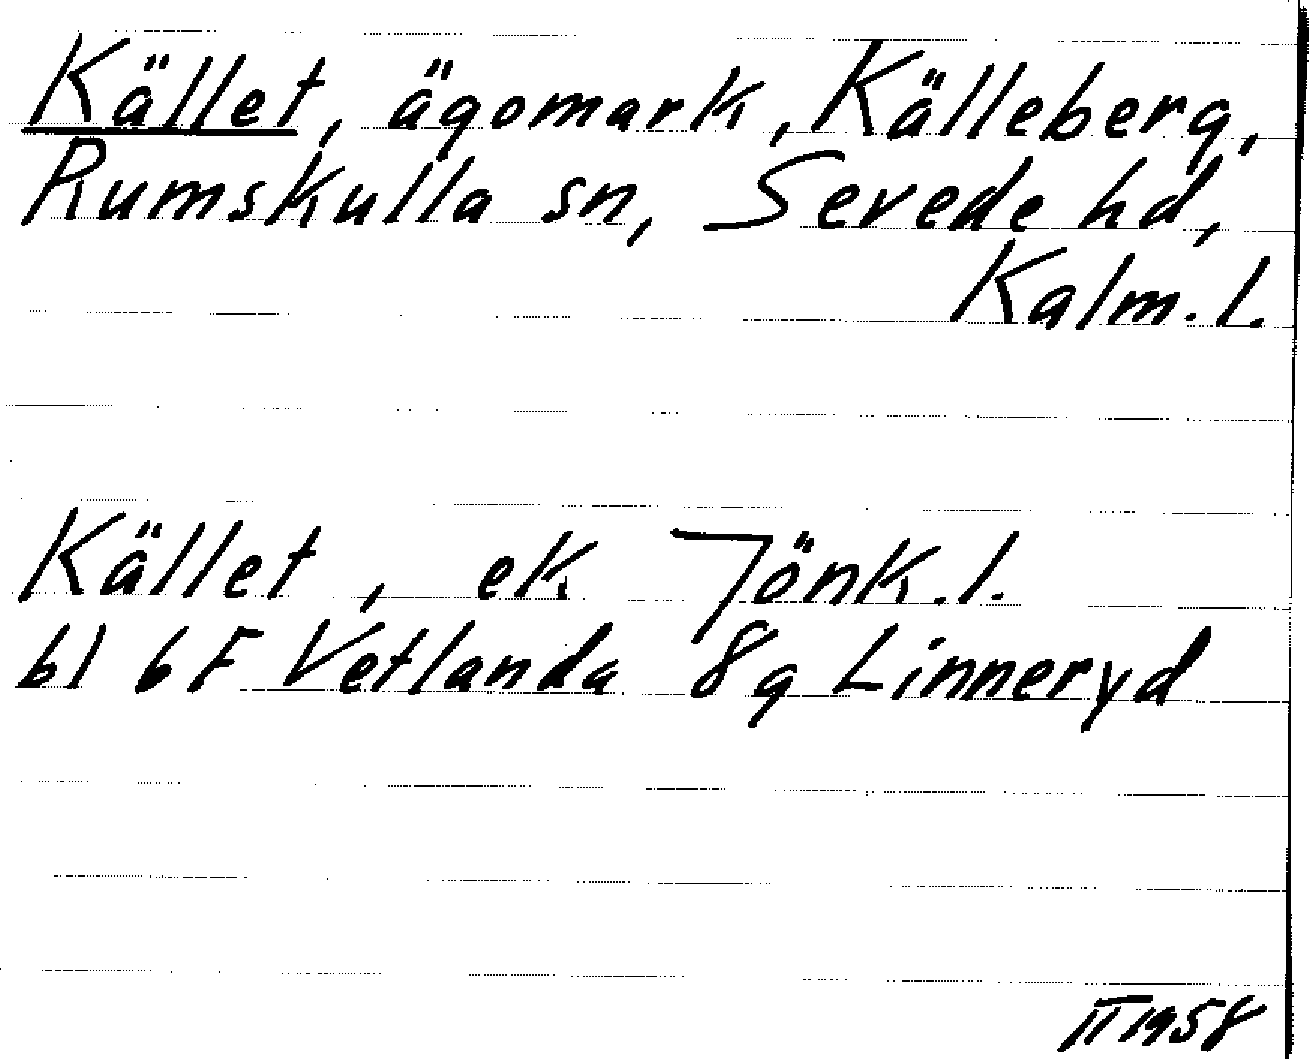 Kället, ägomark, Källeberg,
Rumskulla sn, Sevede hd,
Kalm. l.
Kället, ek Jönk. l.
bl 6F Vetlanda 8g Linneryd
II 1958